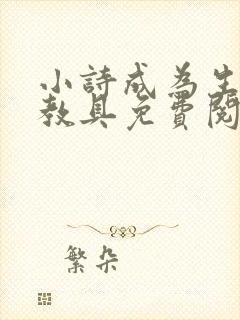 小詩成為生
教具免費閱
繁朵